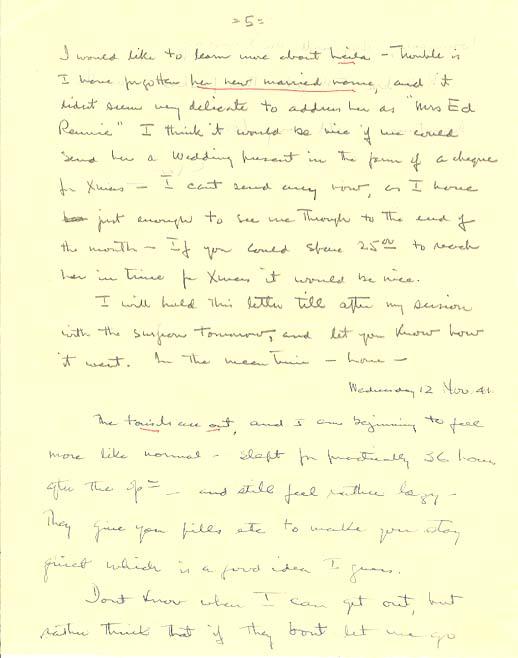 = 5 =
I would like to learn more about Leila - Trouble is
I have forgotten her new married name, and it
didn't seem very delicate to address her as "Mrs Ed
Rennie" I think it would be nice if we could
send her a Wedding present in the form of a cheque
for Xmas - I cant send any now, as I have
just enough to see me through to the end of
the month - If you could spare 25 00 to reach
her in time for Xmas it would be nice.
I will hold this letter till after my session
with the surgeon tomorrow, and let you know how
it went. In the mean time - love -
Wednesday 12 Nov. 41.
The tonsils are out, and I am beginning to feel
more like normal - slept for practically 36 hours
after the op - and still feel rather lazy -
They give you pills etc to make you stay
quiet which is a good idea I guess.
Dont know when I can get out, but
rather think that if they dont let me go